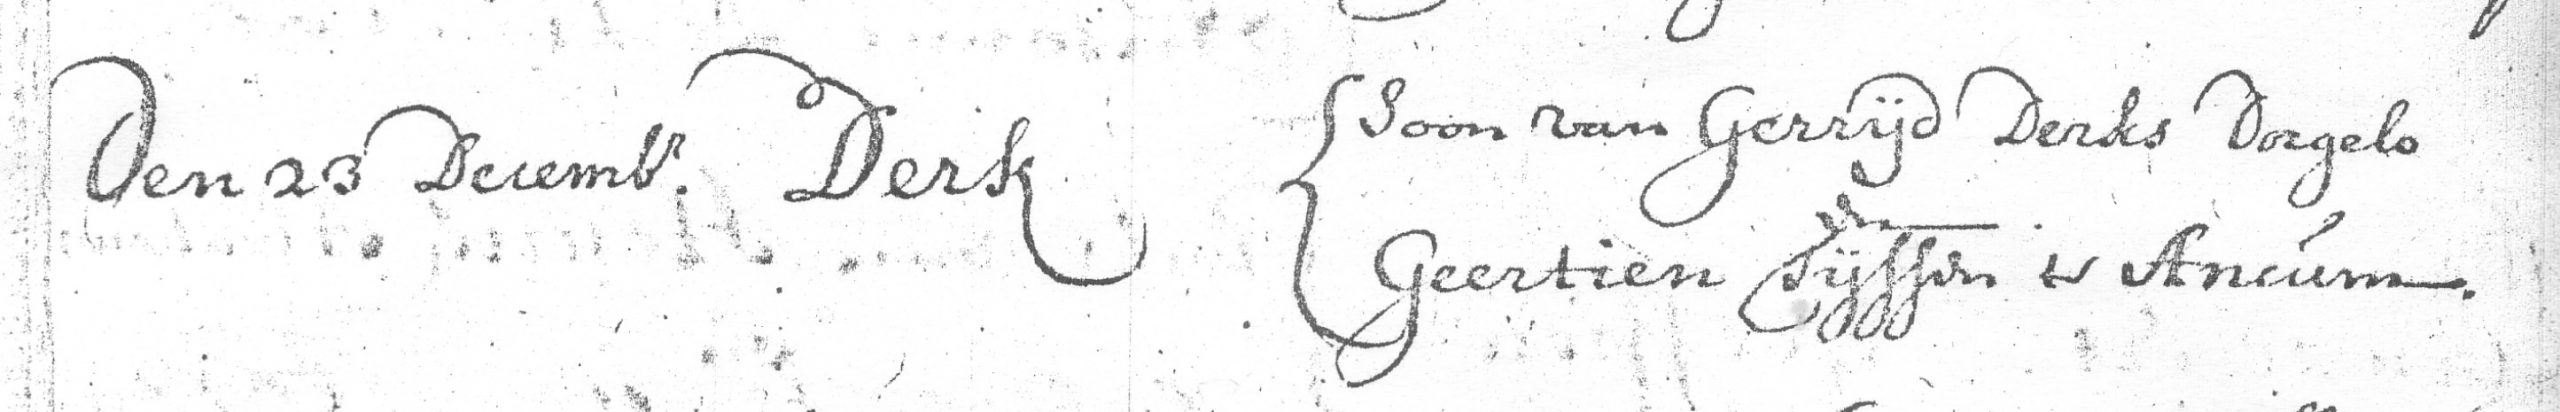 Den 23 Decembr. Derk
Soon van Gerrijd Derks Vorgelo
en
Geertien Tijssen te Ancúm.